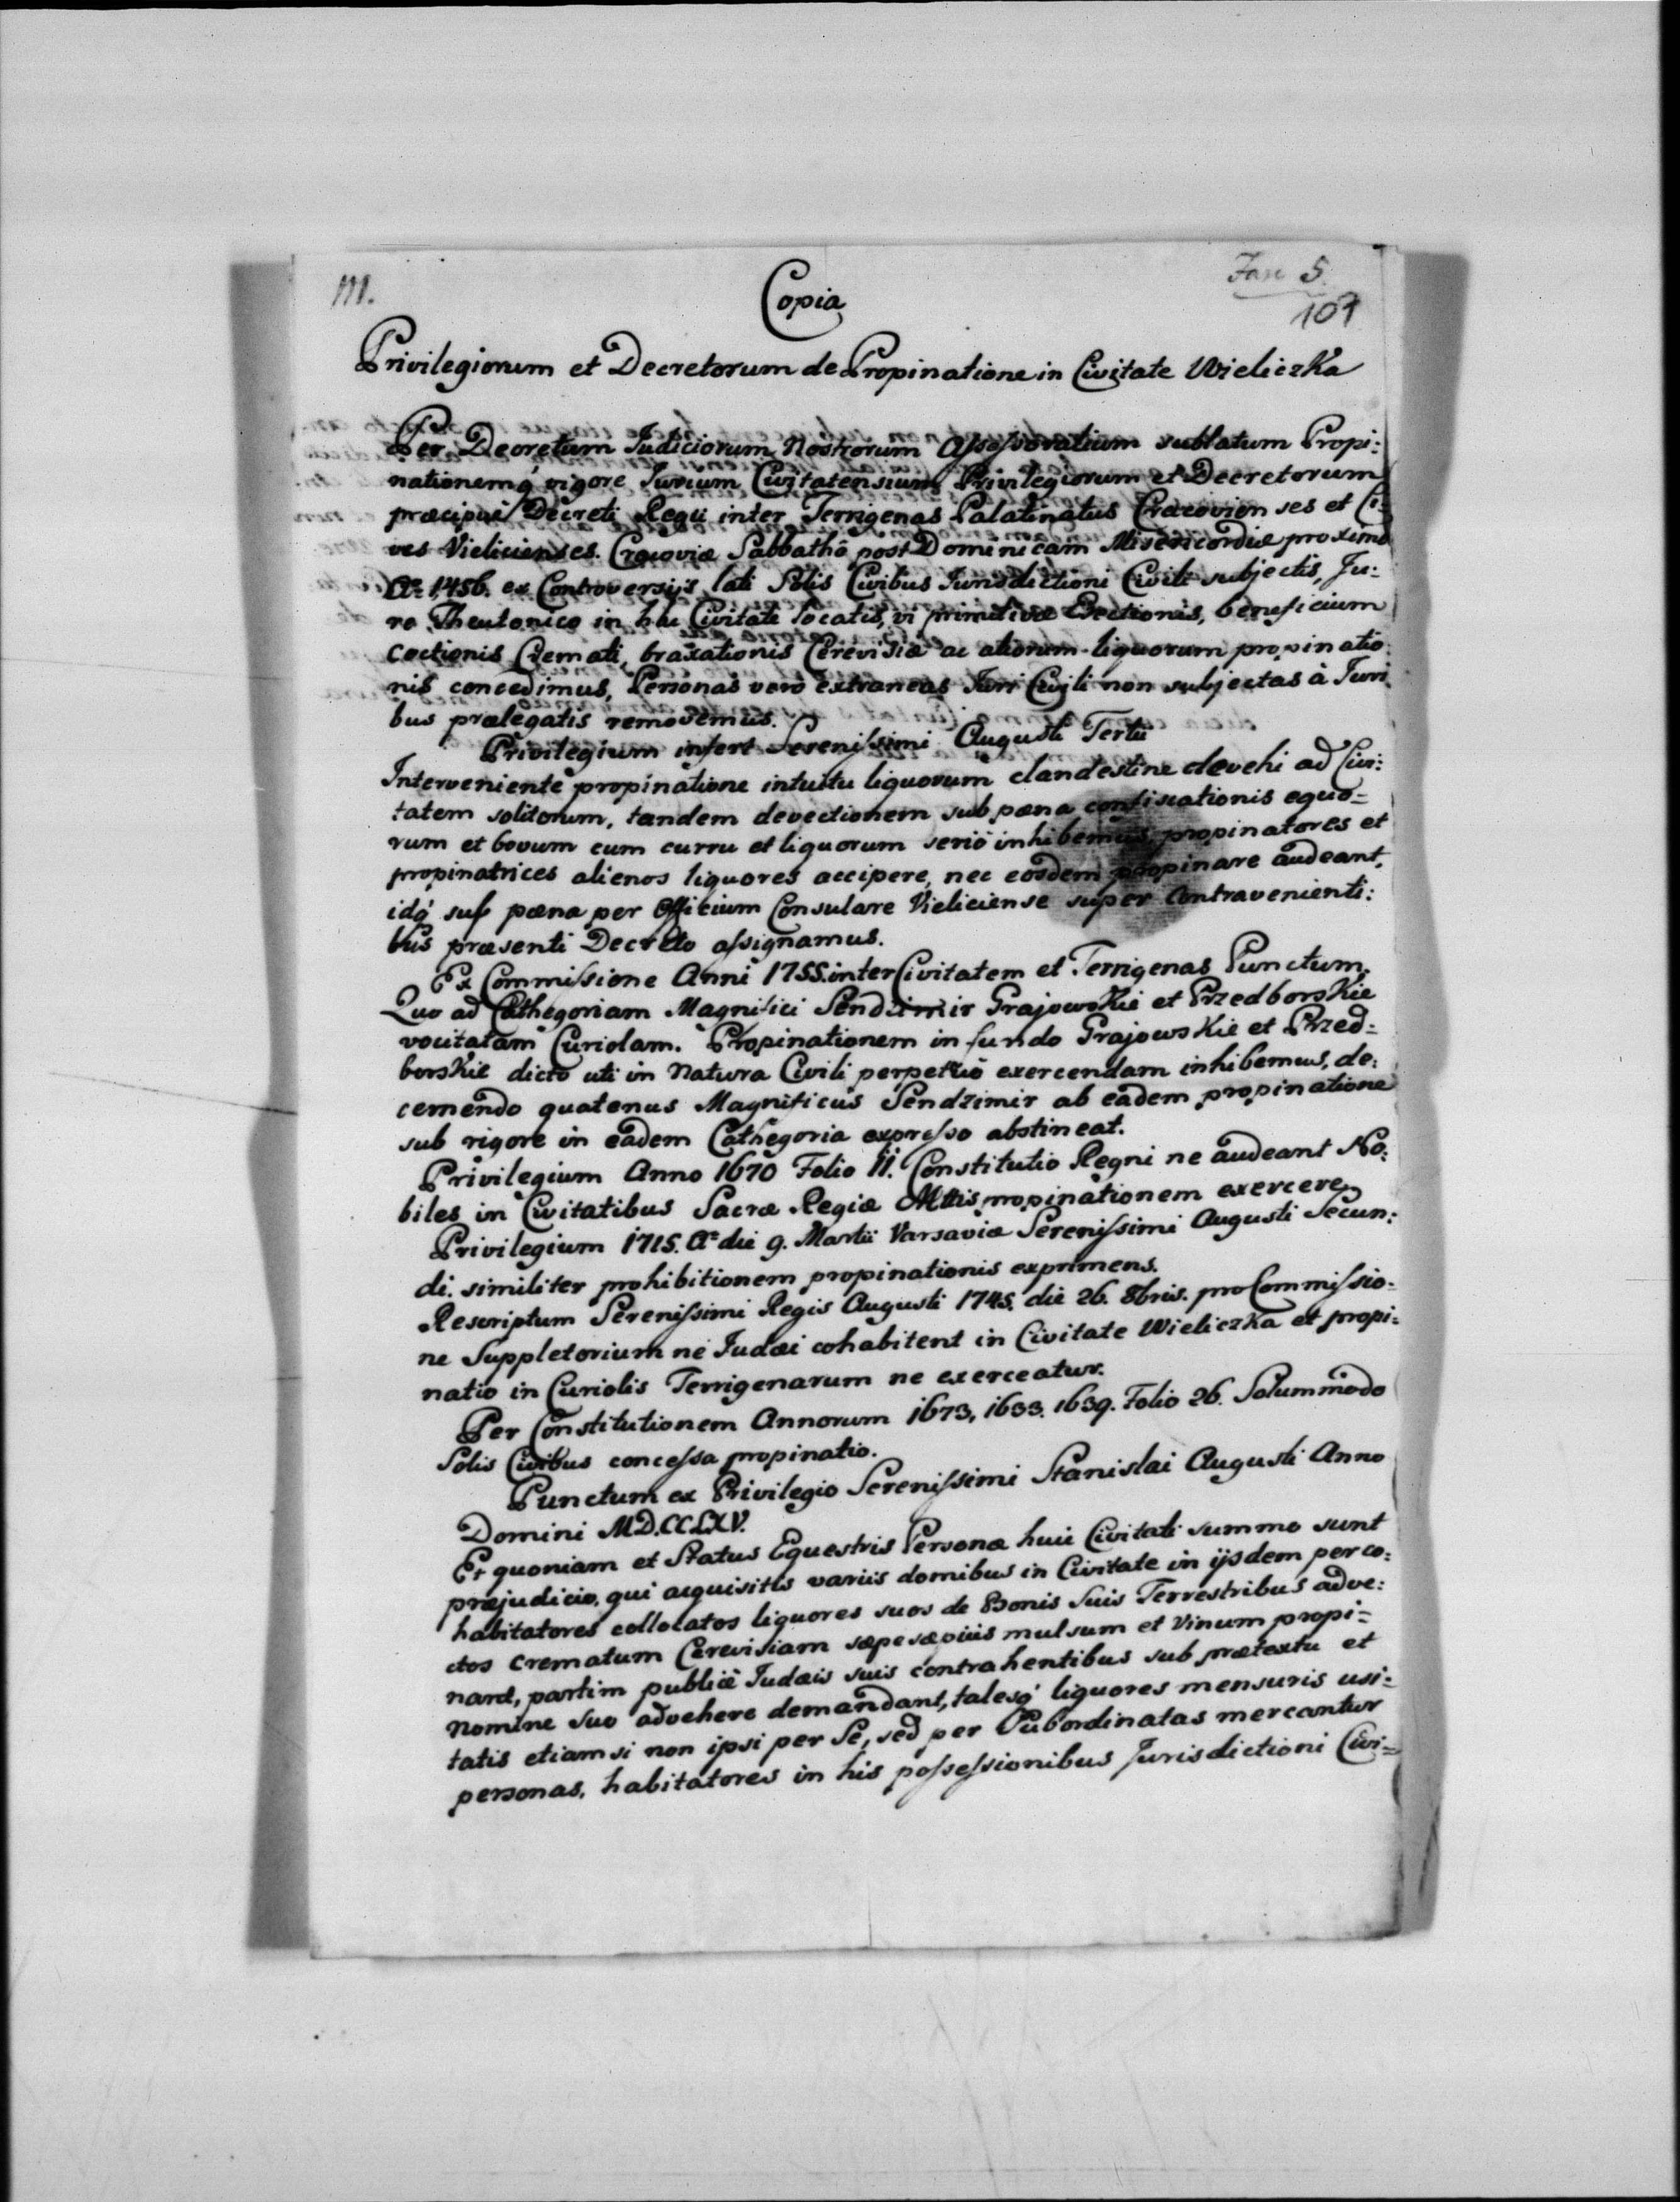 M.
Copia
Fasc 5.
107
Privilegiorum et Decretorum de Propinatione in Civitate Wieliczka
Per Decretum Judiciorum Nostrorum Assessoratium sublatum Propi:
nationemq́ vigore Jurium Civitatensium Privilegiorum et Decretorum
præcipue Decreti Regii inter Terrigenas Palatinatus Cracovien ses et Ci:
ves Vielicienses. Cracoviæ Sabbathô post Dominicam Misericordiæ proximo
Aº 1456. ex Controversijs lati Solis Civibus Jurisdictioni Civili subjectis, Ju:
re Theutonico in hac Civitate locatis, vi primitivæ Erectionis, beneficium
coctionis Cremati, braxationis Cerevisiæ ac aliorum liquorum propinatio:
nis concedimus, Personas vero extraneas Juri Civili non subjectas à Juri
bus prælegatis removemus.
Privilegium insert Serenissimi Augusti Tertii
Interveniente propinatione intuitu liquorum clandestine devehi ad Civi:
tatem solitorum, tandem devectionem sub pæna confiscationis equo=
rum et bovum cum curru et liquorum seriò inhibemus, propinatores et
propinatrices alienos liquores accipere, nec eosdem propinare audeant,
idq́ sub pæna per Officium Consulare Vieliciense super Contravenienti:
bus præsenti Decreto assignamus.
Ex Commissione Anni 1755. inter Civitatem et Terrigenas Punctum.
Quo ad Cathegoriam Magnifici Sendzimir Grajowskie et Przedborskie
vocitatam Curiolam. Propinationem in fundo Grajowskie et Przed=
borskie dicto uti in Natura Civili perpetuò exercendam inhibemus, de:
cernendo quatenus Magnificus Sendzimir ab eadem propinatione
sub rigore in eadem Cathegoria expresso abstineat.
Privilegium Anno 1670 Folio 11. Constitutio Regni ne audeant No:
biles in Civitatibus Sacræ Regiæ Mttis propinationem exercere
Privilegium 1715. Aº die 9. Martii Varsaviæ Serenissimi Augusti Secun:
di. similiter prohibitionem propinationis exprimens.
Rescriptum Serenissimi Regis Augusti 1745. die 26. 8bris. pro Commissio=
ne Suppletorium ne Judæi cohabitent in Civitate Wieliczka et propi=
natio in Curiolis Terrigenarum ne exerceatur.
Per Constitutionem Annorum 1673, 1633. 1639. Folio 26. Solummodo
Solis Civibus concessa propinatio.
Punctum ex Privilegio Serenissimi Stanislai Augusti Anno
Domini MD.CCLXV.
Et quoniam et Status Equestris Personæ huic Civitati summo sunt
præjudicio, qui acquisitis variis domibus in Civitate in ijsdem per co:
habitatores collocatos liquores suos de Bonis Suis Terrestribus adve:
ctos crematum Cerevisiam sæpe sæpius mulsum et Vinum propi=
nant, partim publicè Judæis suis contrahentibus sub prætextu et
Nomine suo advehere demandant, talesq́ liquores mensuris usi=
tatis etiamsi non ipsi per Se, sed per Subordinatas mercantur
personas, habitatores in his possessionibus Jurisdictioni Civi=